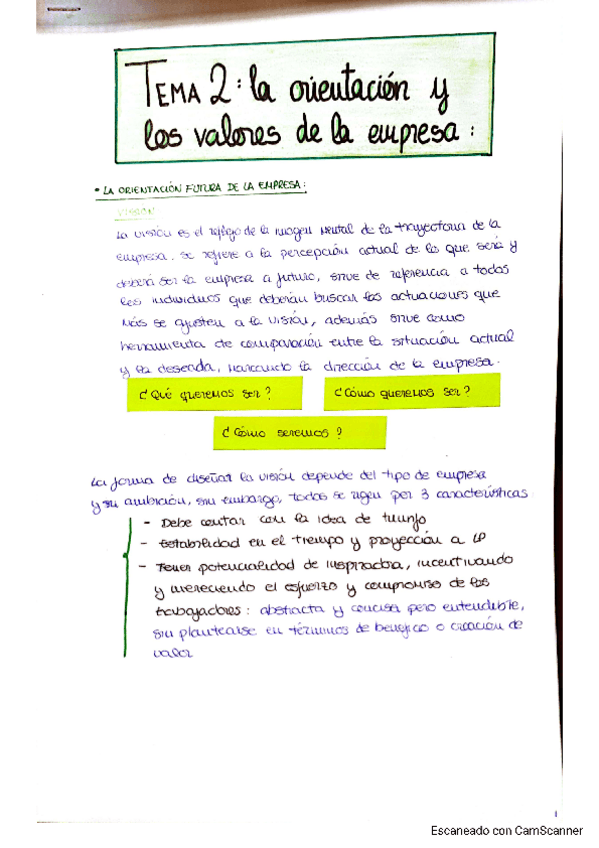 TEMA 2: la orientación y
los valores de la empresa:
• LA ORIENTACIÓN FUTURA DE LA EMPRESA:
VISIÓN
La visión es el reflejo de la imagen mental de la trayectoria de la
empresa. se refiere a la percepción actual de lo que será y
deberá ser la empresa a futuro, sirve de referencia a todos
los individuos que deberán buscar las actuaciones que
más se ajusten a la visión, además sirve como
herramienta de comparación entre la situación actual
y la deseada, marcando la dirección de la empresa.
¿Qué queremos ser?
¿Cómo queremos ser?
¿Cómo seremos?
La forma de diseñar la visión depende del tipo de empresa
y su ambición, sin embargo, todos se rigen por 3 características
- Debe contar con la idea de triunfo
- Estabilidad en el tiempo y proyección a LP
- Tener potencialidad de inspiradora, incentivando
y mereciendo el esfuerzo y compromiso de los
trabajadores: abstracta y concisa pero entendible,
sin plantearse en términos de beneficio o creación de
valor
1
Escaneado con CamScanner